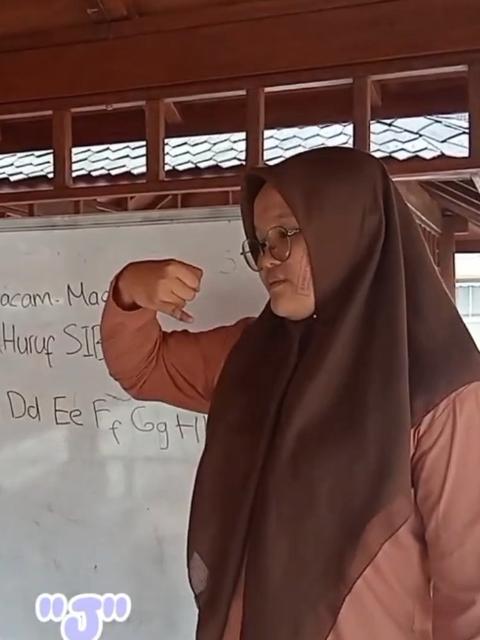 acam. Mac
Huruf SIB
Dd Ee Ff Gg H
"J"